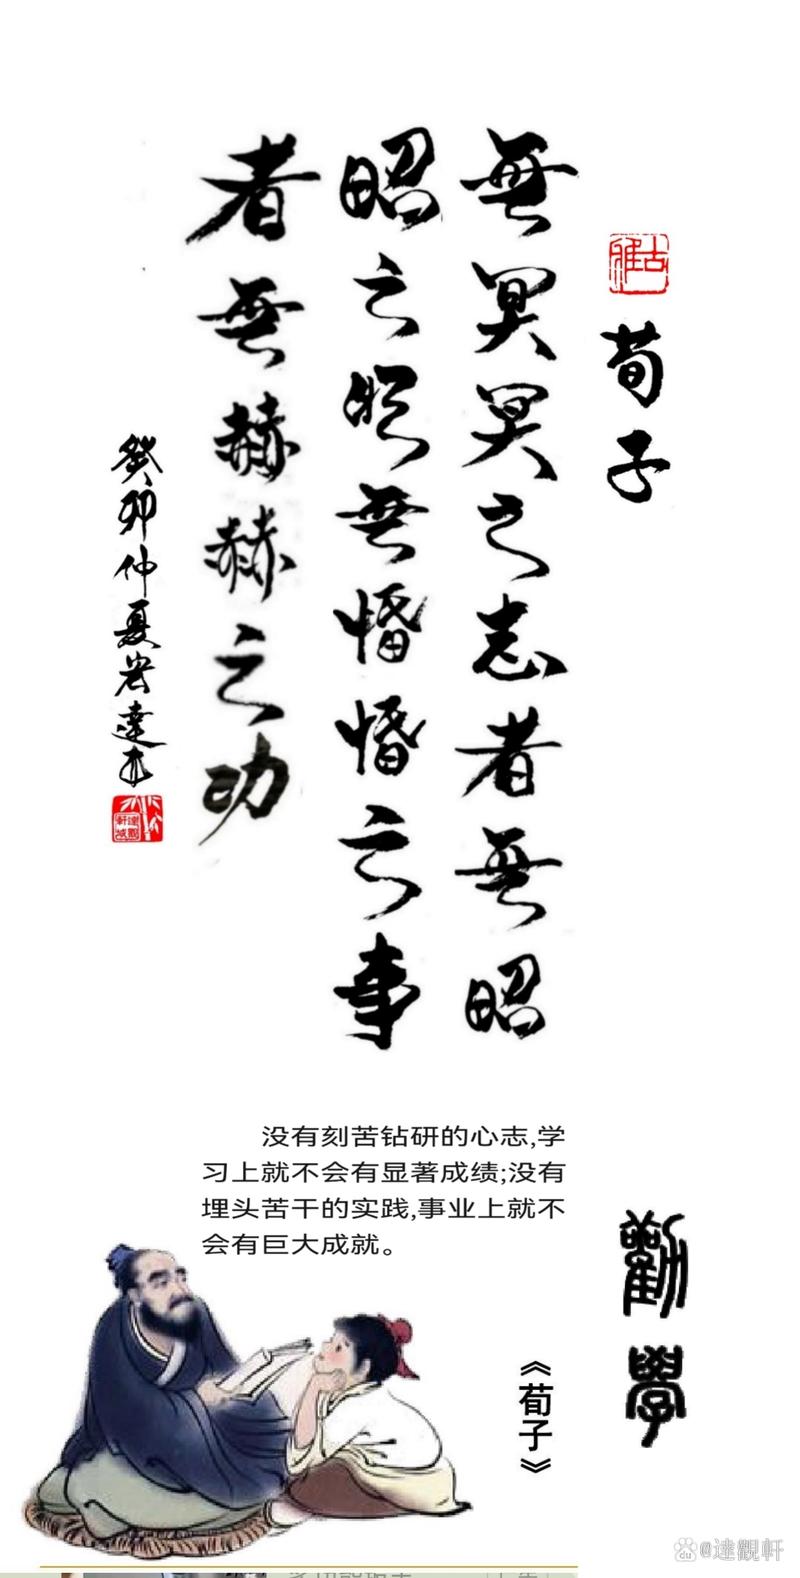 古雅
荀子
無冥冥之志者無昭
昭之明無惛惛之事
者無赫赫之功
癸卯仲夏宏達书
没有刻苦钻研的心志,学
习上就不会有显著成绩;没有
埋头苦干的实践,事业上就不
会有巨大成就。
勸學
《荀子》
du @逹觀軒